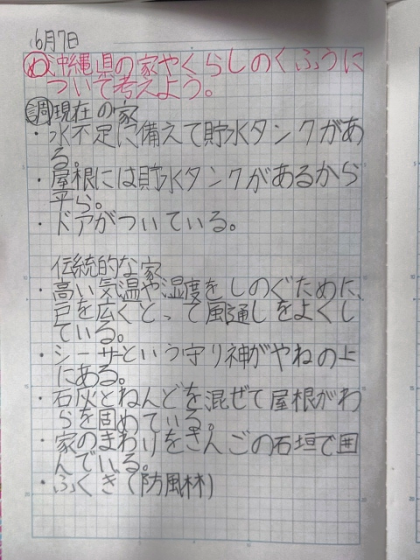 6月7日
め沖縄県の家やくらしのくふうに
ついて考えよう。
調現在の家
・水不足に備えて貯水タンクがあ
る。
・屋根には貯水タンクがあるから
平ら。
・ドアがついている。
伝統的な家
・高い気温や湿度をしのぐために、
戸を広くとって風通しをよくし
ている。
・シーサという守り神がやねの上
にある。
・石灰とねんどを混ぜて屋根がわ
らを固めている。
・家のまわりをさんごの石垣で囲
んでいる。
・ふくぎ(防風林)